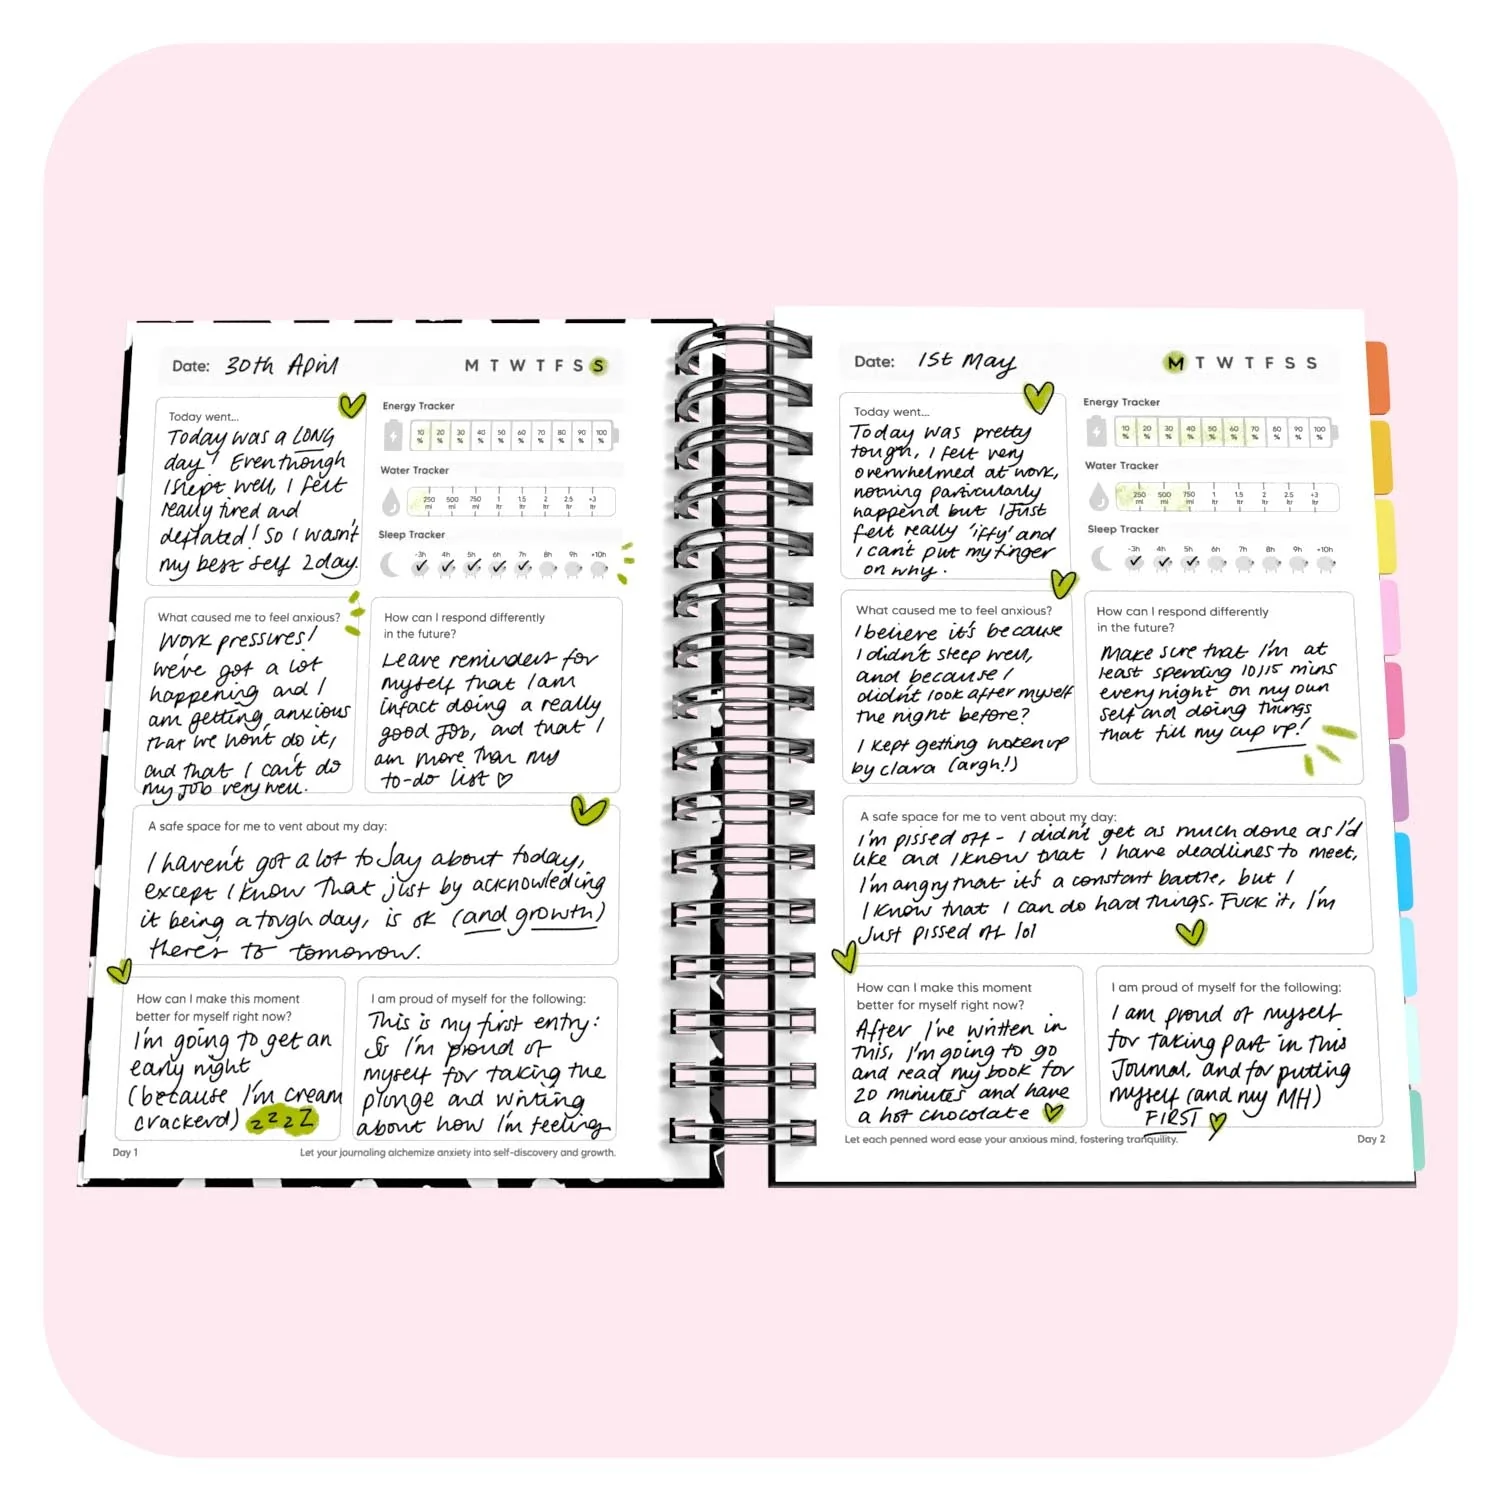 Date: 30th April
M T W T F S S
Today went...
Today was a LONG
day! Even though
I slept well, I felt
really tired and
deflated! So I wasn't
my best self 2day.
Energy Tracker
10 % 20 % 30 % 40 % 50 % 60 % 70 % 80 % 90 % 100 %
Water Tracker
250 ml 500 ml 750 ml 1 ltr 1.5 ltr 2 ltr 2.5 ltr +3 ltr
Sleep Tracker
-3h 4h 5h 6h 7h 8h 9h +10h
What caused me to feel anxious?
Work pressures!
We've got a lot
happening and I
am getting anxious
that we won't do it,
and that I can't do
my job very well.
How can I respond differently
in the future?
Leave reminders for
myself that I am
infact doing a really
good job, and that I
am more than my
to-do list
A safe space for me to vent about my day:
I haven't got a lot to say about today,
except I know that just by acknowledging
it being a tough day, is ok (and growth)
there's to tomorrow.
How can I make this moment
better for myself right now?
I'm going to get an
early night
(because I'm cream
crackerd) zzzZ
I am proud of myself for the following:
This is my first entry:
So I'm proud of
myself for taking the
plunge and writing
about how I'm feeling
Day 1
Let your journaling alchemize anxiety into self-discovery and growth.
Date: 1st May
M T W T F S S
Today went...
Today was pretty
tough, I felt very
overwhelmed at work,
nothing particularly
happend but I just
felt really 'iffy' and
I can't put my finger
on why.
Energy Tracker
10 % 20 % 30 % 40 % 50 % 60 % 70 % 80 % 90 % 100 %
Water Tracker
250 ml 500 ml 750 ml 1 ltr 1.5 ltr 2 ltr 2.5 ltr +3 ltr
Sleep Tracker
-3h 4h 5h 6h 7h 8h 9h +10h
What caused me to feel anxious?
I believe it's because
I didn't sleep well,
and because I
didn't look after myself
the night before?
I kept getting woken up
by clara (argh!)
How can I respond differently
in the future?
Make sure that I'm at
least spending 10/15 mins
every night on my own
self and doing things
that fill my cup up!
A safe space for me to vent about my day:
I'm pissed off - I didn't get as much done as I'd
like and I know that I have deadlines to meet,
I'm angry that it's a constant battle, but I
I know that I can do hard things. Fuck it, I'm
Just pissed off lol
How can I make this moment
better for myself right now?
After I've written in
this, I'm going to go
and read my book for
20 minutes and have
a hot chocolate
I am proud of myself for the following:
I am proud of myself
for taking part in this
Journal, and for putting
myself (and my MH)
FIRST
Let each penned word ease your anxious mind, fostering tranquility.
Day 2